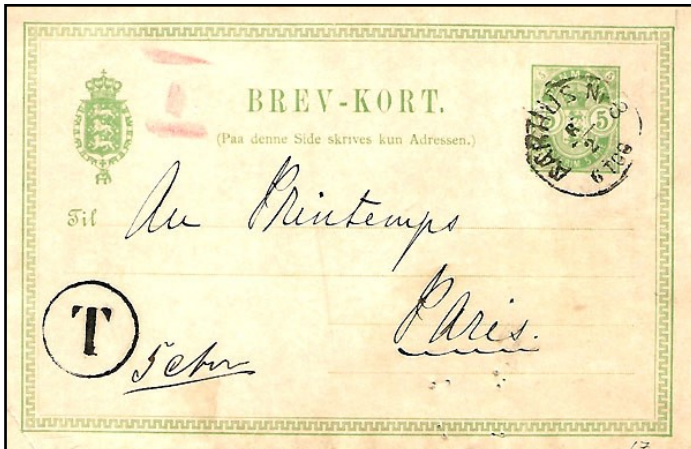 BREV-KORT.
(Paa denne Side skrives kun Adressen.)
5 5
AARHUS N.
8
2
6 TOG
Til Au Printemps
Paris.
T
5 ctm
17